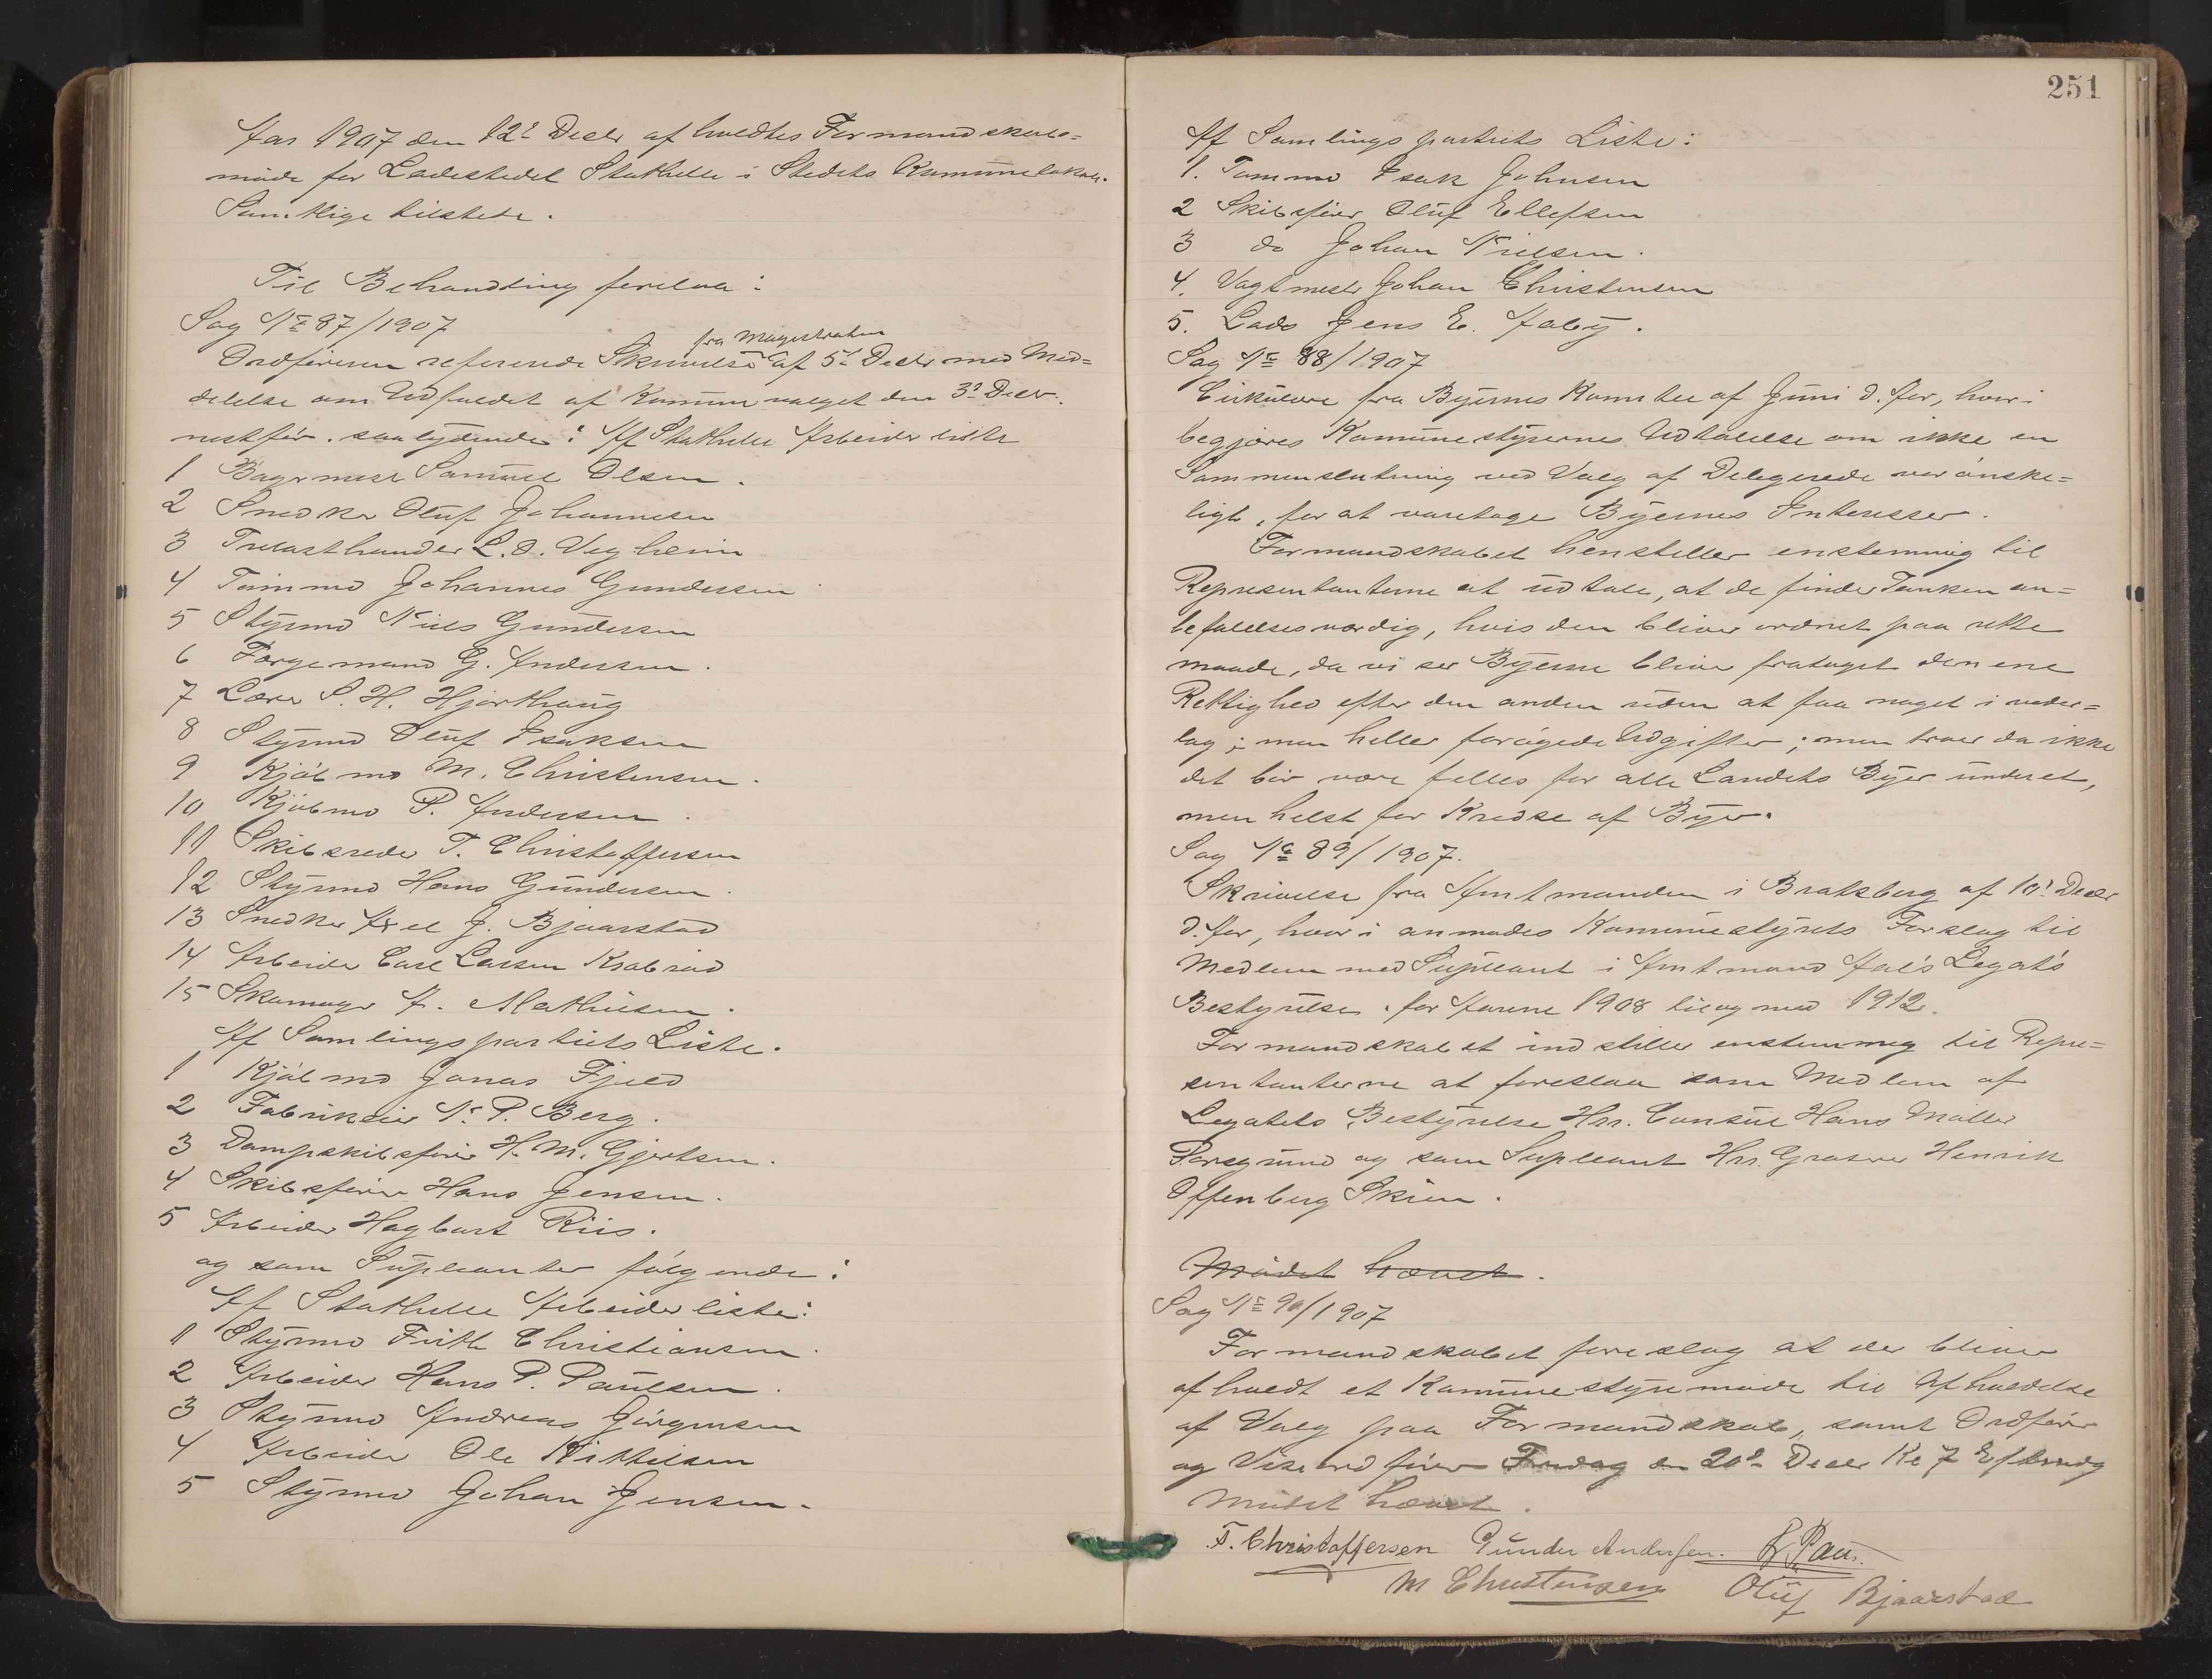 Aar 1907 den 12te Decbr afholdtes Formandskabs=
møde for Ladestedet Stathelle i Stedets Kommunelokale.
Samtlige tilstede.
Til Behandling forelaa:
Sag No 87/1907
fra Magistraten
Ordføreren refererede Skrivelse af 5te Decbr med Med=
delelse om Udfaldet af Kommunevalget den 3de Decbr.
nestfør. saalydende: Af Stathelle Arbeiderliste
1 Bagermest Samuel Olsen.
2 Snedker Oluf Johannesen
3 Trelasthandler L. O. Vegheim
4 Tømmd Johannes Gundersen
5 Styrmd Niels Gundersen
6 Færgemand G. Andersen.
7 Lærer S. H. Hjorthaug
8 Styrmd Oluf Isaksen
9 Kjøbmd M. Christensen.
10 Kjøbmd P. Andersen.
11 Skibsreder T. Christoffersen
12 Styrmd Hans Gundersen.
13 Snedker Axel J. Bjaarstad
14 Arbeider Carl Larsen Krabrød
15 Skomager A. Mathisen.
Af Samlingspartiets Liste.
1 Kjøbmd Jonas Fjeld
2 Fabrikeier N. P. Berg.
3 Dampskibsfører H. M. Gjertsen.
4 Skibsfører Hans Jensen.
5 Arbeider Hagbart Riis.
og som Supleanter følgende:
Af Stathelle Arbeiderliste:
1 Styrmd Christiansen.
2 Arbeider Hans P. Paulsen.
3 Styrmd Andreas Jørgensen
4 Arbeider Ole Kittilsen
5 Styrmd Johan Jensen.
251
Af Samlingspartiets Liste:
1. Tømmd Isak Johnsen
2 Skibsfører Oluf Ellefsen
3 do Johan Nielsen.
4. Vagtmestr Johan Christensen
5. Lods Jens E. Aaby.
Sag No 88/1907
Cirkulære fra Byernes Komite af Juni d. Aar, hvori
begjæres Kommunestyrernes Udtalelse om ikke en
Sammenslutning ved Valg af Delegerede var ønske=
ligt, for at varetage Byernes Interesser.
Formandskabet henstiller enstemmig til
Representanterne at udtale, at de finder Tanken an=
befalelsesværdig, hvis den bliver ordnet paa rette
maade, da vi ser Byerne bliver frataget den ene
Rettighed efter den anden uden at faa noget i veder=
lag; men heller forøgede Udgifter; men troer da ikke
det bør være felles for alle Landets Byer underet,
men helst for Kredse af Byer.
Sag No 89/1907.
Skrivelse fra Amtmanden i Bratsberg af 10de Decbr
d. Aar, hvori anmodes Kommunestyrets Forslag til
Medlem med Supleant i Amtmand Aal's Legat's
Bestyrelse. for Aarene 1908 til og med 1912.
Formandskabet indstiller enstemmig til Repre=
sentanterne at foreslaa som Medlem af
Legatets Bestyrelse Hrr. Consul Hans Møller
Porsgrund og som Supleant Hrr. Grosserer Henrik
Offenberg Skien.
Mødet hævet.
Sag No 90/1907
Formandskabet foreslog at der bliver
afholdt et Kommunestyremøde til Afholdelse
af Valg paa Formandskab, samt Ordfører
og Viseordfører Fredag den 20de Decbr Kl 7 Eftermdg
Mødet hævet.
T. Christoffersen Gunder Andersen. Paus.
M Christensen Oluf Bjaarstad